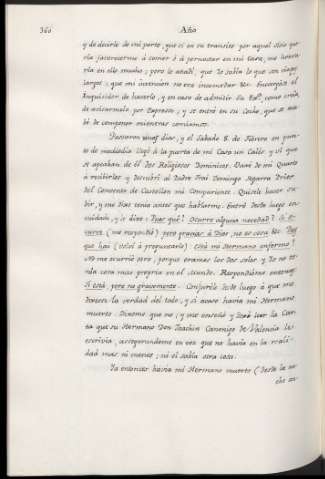 360 Año
y de decirle de mi parte, que si en su transito por aquel sitio que-
ria favorecerme á comer ó á pernoctar en mi casa, me honra-
ria en ello mucho; pero le añadí, que Yo sabía lo que son viages
largos; que mi intencion no era incomodar &c. Encargóse el
Inquisidor de hacerlo, y en caso de admitir Su
de avisarmelo por Expreso; y se entró en su Coche, que se aca-
bó de componer mientras comíamos.
Pasaron unos dias, y el Sábado 8. de Febrero en pun-
to de mediodia llegó á la puerta de mi Casa un Calés, y ví que
se apeaban de él dos Religiosos Dominicos. Bajé de mi Quarto
á recibirles y descubrí al Padre Frai Domingo Segarra Prior
del Convento de Castellon mi Compariente. Quísele hacer su-
bir, y me dixo tenia antes que hablarme. Entró desde luego en
cuidado, y le dixe: Pues qué? Ocurre alguna novedad? Si
(me respondió) pero gracias á Dios, no es cosa &c. Pues
que hai (volví á preguntarle) Está mi Hermano enfermo?
No me ocurrió otro, porque eramos los dos solos y Yo no te-
nia cosa mas propria en el Mundo. Respondióme entonces:
Si está, pero no gravemente. Conjuréle desde luego á que me
dixera la verdad del todo, y si acaso havia mi Hermano
muerto. Díxome que no; y me enseñó y dexó leer la Car-
ta que su Hermano Don Joachin Canonigo de Valencia le
escrivia, asegurandome en vez que no havia en la reali-
dad mas ni menos; ni él sabía otra cosa.
Ya entonces havia mi Hermano muerto (desde la no-
che an-